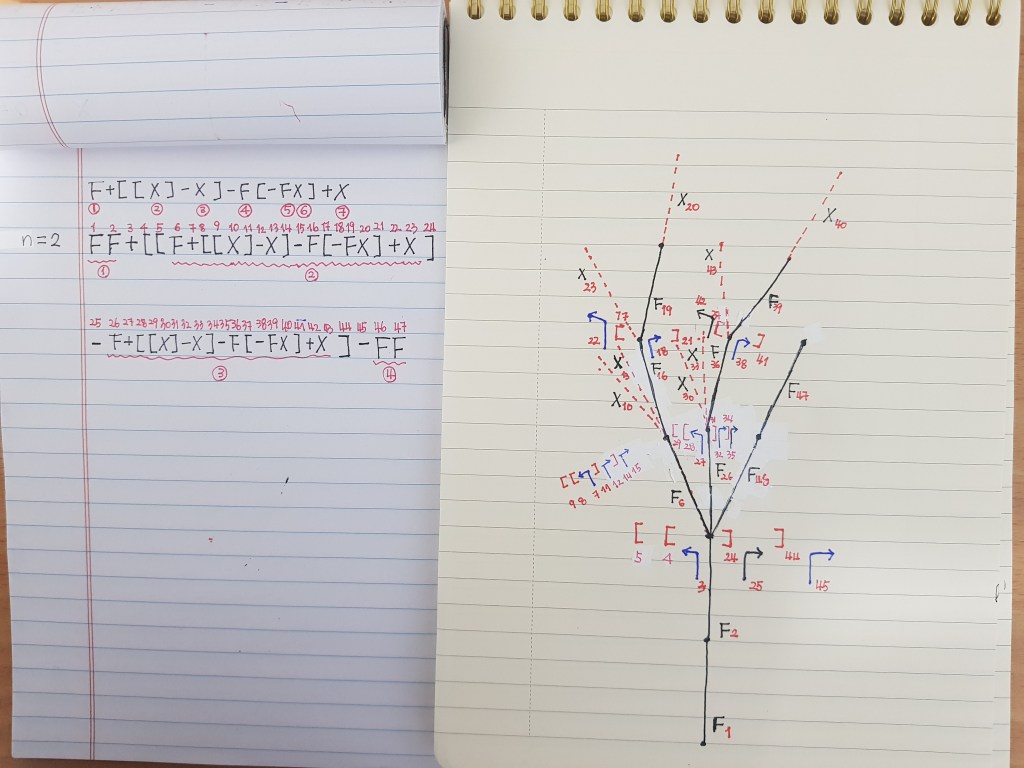 F+[[X]-X]-F[-FX]+X
① ② ③ ④ ⑤ ⑥ ⑦
1 2 3 4 5 6 7 8 9 10 11 12 13 14 15 16 17 18 19 20 21 22 23 24
n=2 FF+[[F+[[X]-X]-F[-FX]+X]
① ②
25 26 27 28 29 30 31 32 33 34 35 36 37 38 39 40 41 42 43 44 45 46 47
-F+[[X]-X]-F[-FX]+X]-FF
③ ④
X20
X40
X23
X43
F19
F39
17 [
22
18
] 21
42
[
38
] 41
F16
F36
X
X10
X33
X30
F47
[ [ ] ]
29 28 27 32 34 35
[ [ ] ]
9 8 7 11 12 14 15
F6
F26
F46
[ [ ] ]
5 4 3 24 25 44 45
F2
F1